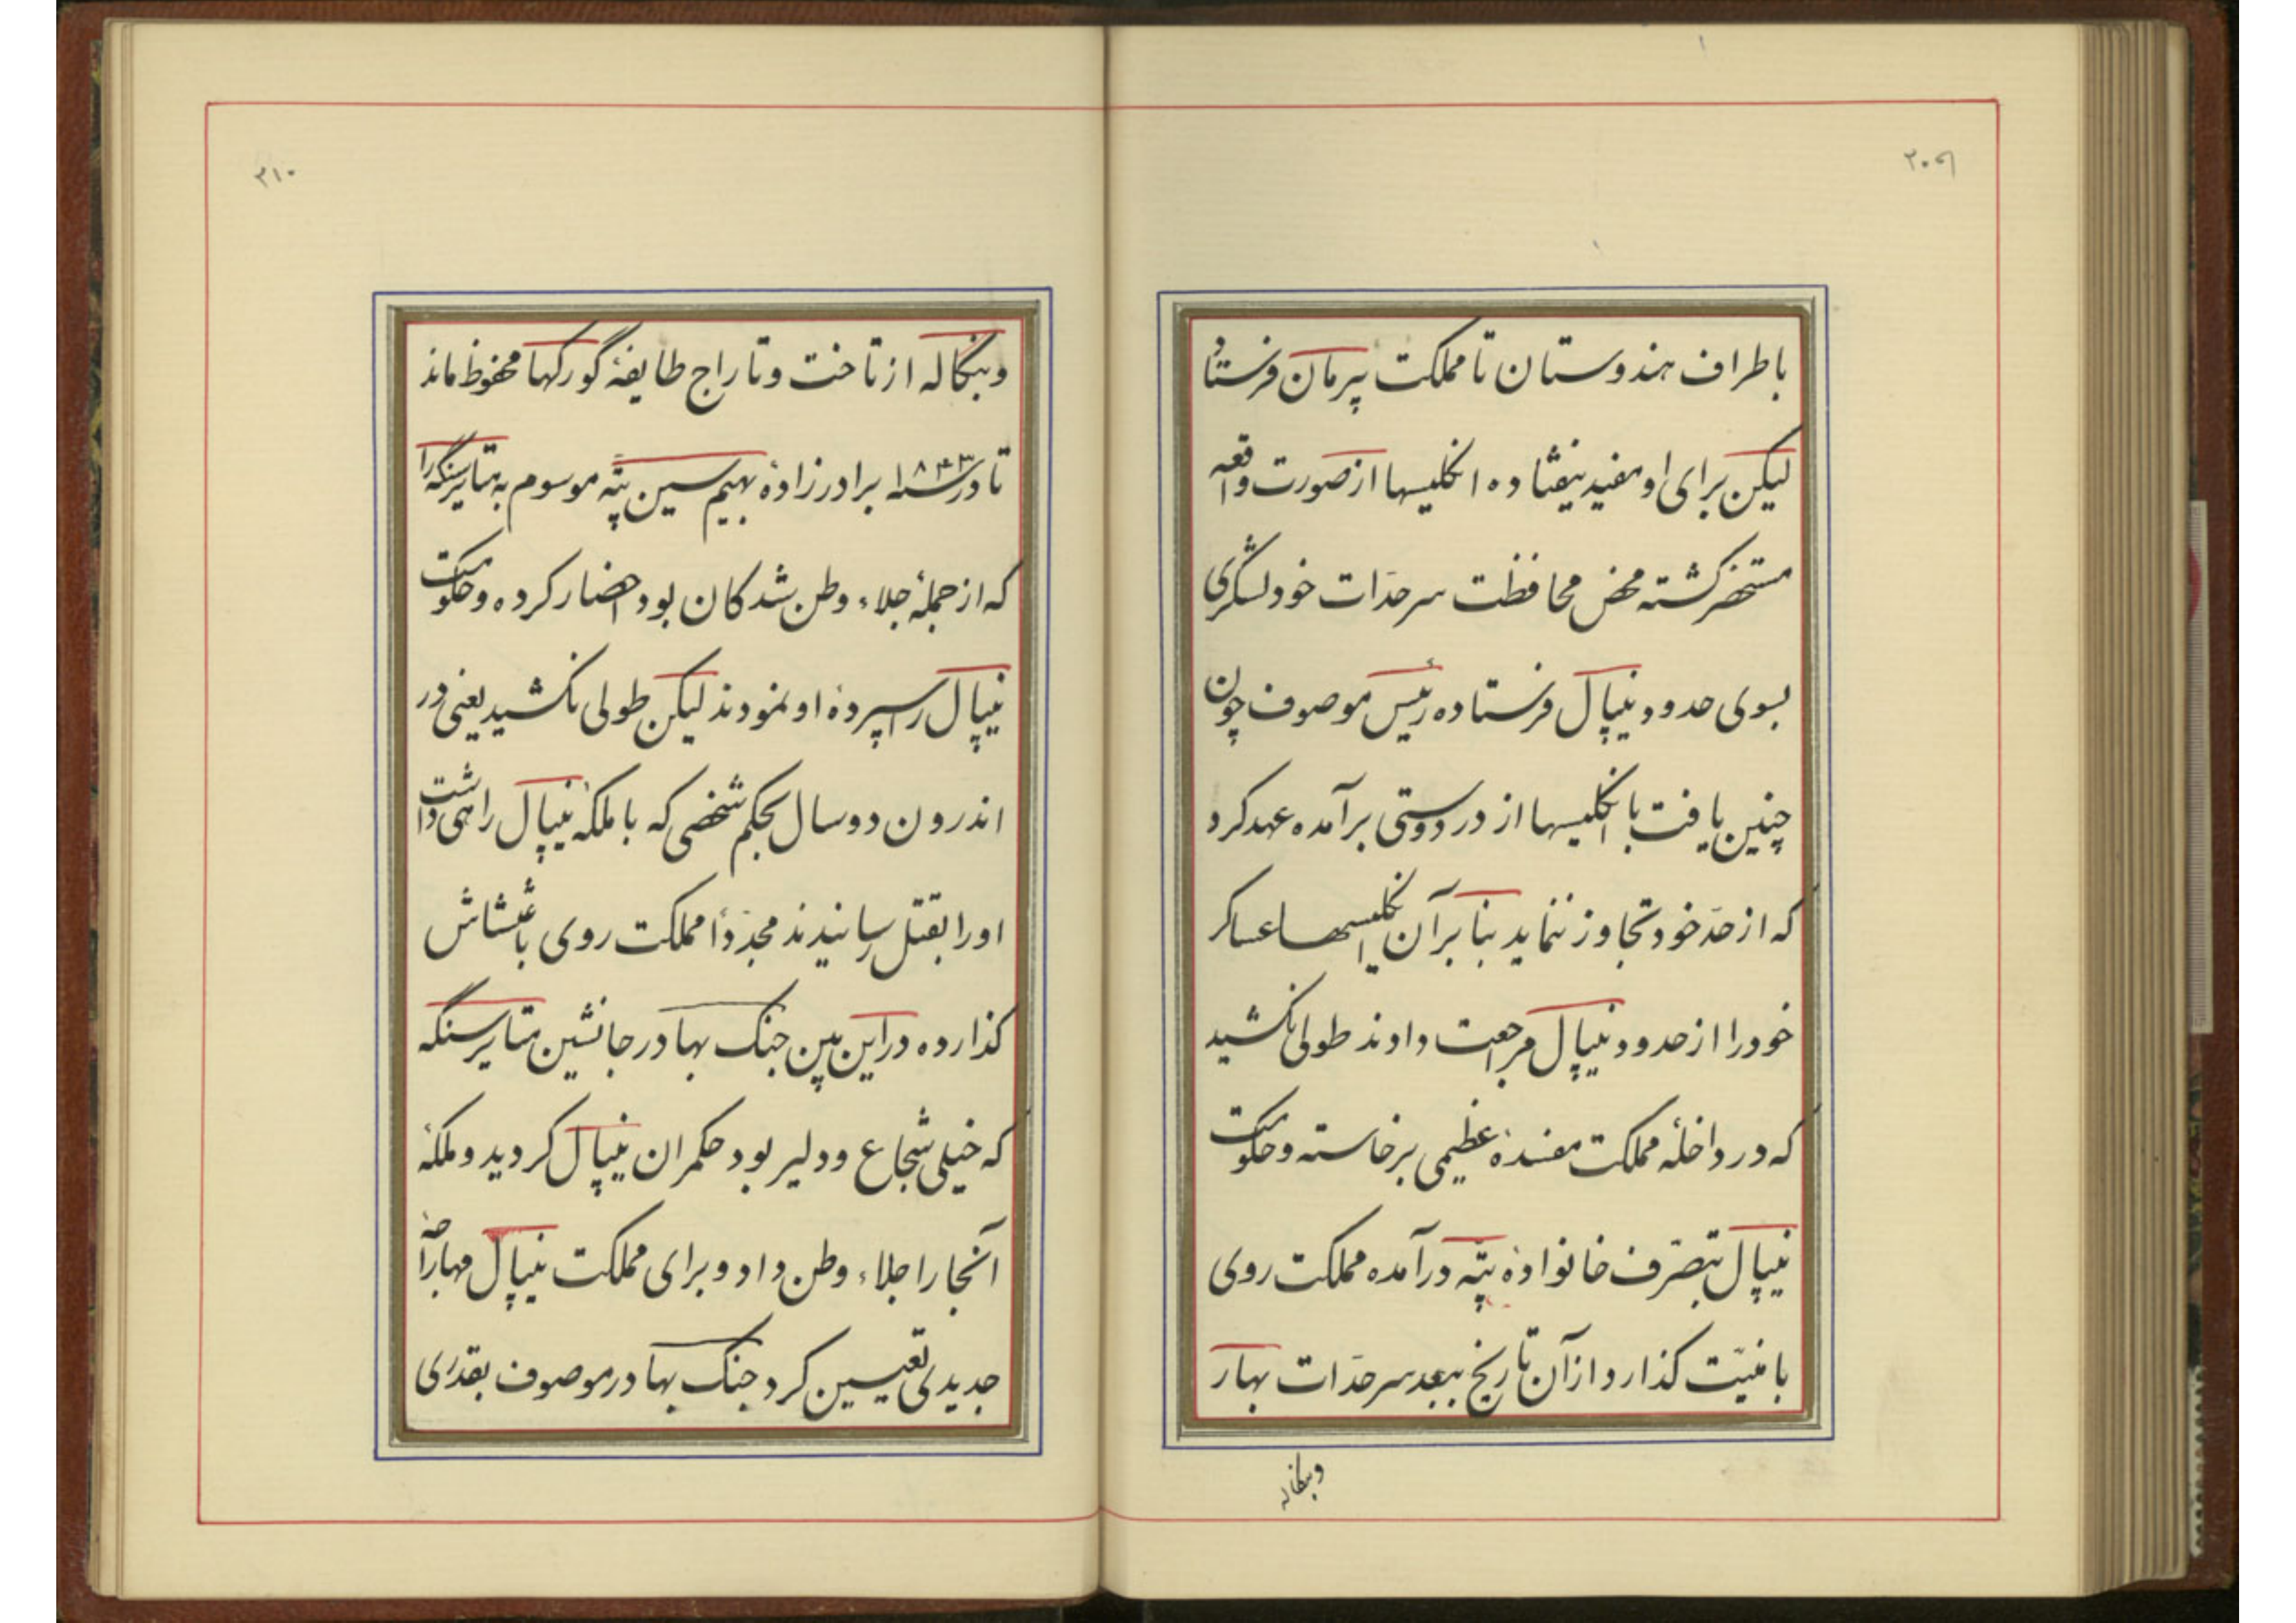 ۳۰۹
باطراف هندوستان تا مملکت پیرمان فرستاد
لیکن برای او مفید نیفتاده انگلیسها از صورت واقعه
مستحضر کشته محض محافظت سرحدّات خود لشگری
بسوی حدود نیپال فرستاده رئیس موصوف چون
چنین یافت با انگلیسها از در دوستی برآمده عهد کرد
که از حدّ خود تجاوز ننماید بنابر آن انگلیسها عساکر
خود را از حدود نیپال مراجعت دادند طولی نکشید
که در داخلهٔ مملکت مفسدهٔ عظیمی برخاسته و حکومت
نیپال بتصرّف خانوادهٔ پتّه درآمده مملکت روی
بامنیّت کذارد از آن تاریخ ببعد سرحدّات بهار
وبنکاله
۳۱۰
وبنکاله از تاخت و تاراج طایفهٔ گورکها محفوظ ماند
تا در سنه ۱۸۴۳ برادرزادهٔ بهیم سین پتّه موسوم به متابرسنگه را
که از جملهٔ جلاء وطن شدکان بود احضار کرده و حکومت
نیپال را سپردهٔ او نمودند لیکن طولی نکشید یعنی در
اندرون دو سال بحکم شخصی که با ملکهٔ نیپال راهی داشت
او را بقتل رسانیدند مجدّدأ مملکت روی باغتشاش
کذارده در این بین جنک بهادر جانشین متابرسنگه
که خیلی شجاع و دلیر بود حکمران نیپال کردید و ملکهٔ
آنجا را جلاء وطن داد و برای مملکت نیپال مهاراجهٔ
جدیدی تعیین کرد جنک بهادر موصوف بقدری